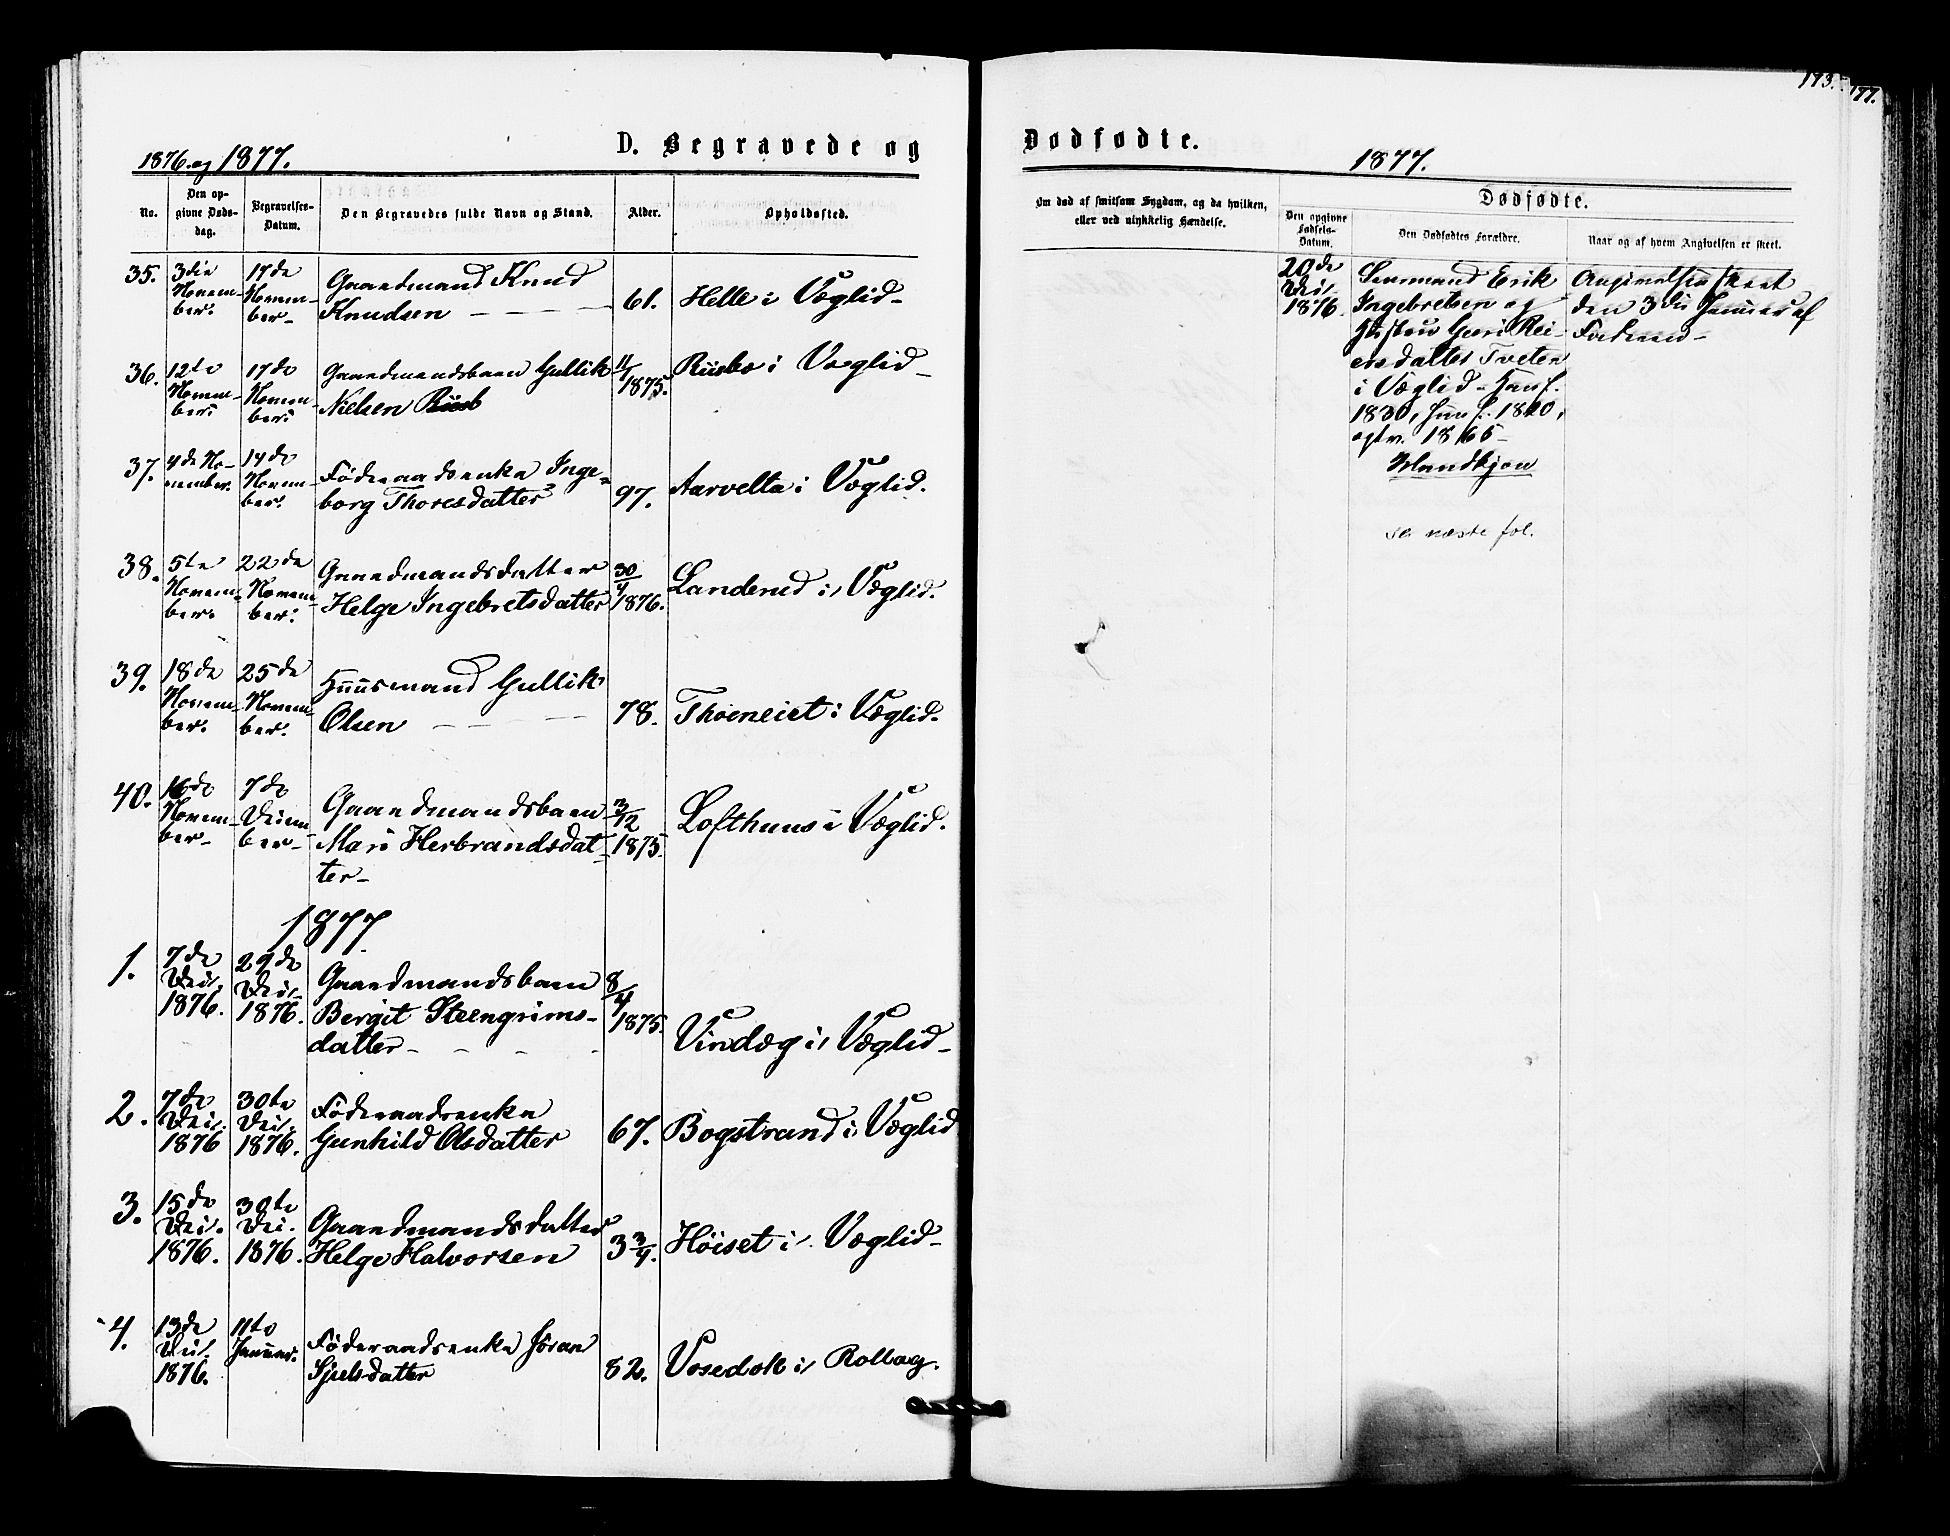 1876. og 1877.
D. Begravede og
No.
Den op-
givne Døds-
dag.
Begravelses-
Datum.
Den Begravedes fulde Navn og Stand.
Alder.
Opholdssted.
35.
3die
Novem-
ber.
17de
Novem-
ber-
Gaardmand Knud
Knudsen - - - -
61.
Helle i Veglid-
36.
12te
Novem-
ber.
17de
Novem-
ber.
Gaardmandsbarn Gullik
Nielsen
1875.
Ruusbo i Veglid-
37.
4de No-
vember.
14de
Novem-
ber.
Føderaadsenke Inge-
borg Thoresdatter
97.
Aarvelta i Veglid.
38.
5te
Novem-
ber.
22de
Novem-
ber.
Gaardmandsdatter
Helge Ingebretsdatter
30/4
1876.
Landerud i Veglid.
39.
18de
Novem-
ber.
25de
Novem-
ber.
Huusmand Gullik
Olsen - - - -
78.
i Veglid.
40.
16de
Novem-
ber-
7de
Decem-
ber-
Gaardmandsbarn
Mari Herbrandsdat-
ter-
3/12
1875.
Lofthuus i Veglid.
1877.
1.
7de
Dec.
1876.
29de
Dec.
1876.
Gaardmandsbarn
Bergit Steengrims-
datter- - - -
8/4
1875.
Vindeg i Veglid-
2.
7de
Dec.
1876
30te
Dec.
1876.
Føderaadsenke
Gunhild Olsdatter
67.
Bogstrand i Veglid
3.
15de
Dec.
1876.
30te
Dec.
1876.
Gaardmandsdatter
Helge Halvorsen
3 3/4.
Høiset i Veglid-
4.
13de
Dec.
1876.
11te
Januar.
Føderaadsenke Jøran
82.
i Rollag.
173.
177.
Dødfødte.
1877.
Om død af smitsom Sygdom, og da hvilken,
eller ved ulykkelig Hændelse.
Dødfødte.
Den opgivne
Fødsels-
Datum.
Den Dødfødtes Forældre.
Naar og af hvem Angivelsen er skeet.
20de
Dec.
1876.
Erik
Ingebretsen og
Hustru Guri Rei-
ersdatter Tveten
i Veglid- Han f.
1830, Hun f. 1840,
egtv. 1865-
Mandkjøn
Angivelsen skeet
den 3die Januar af
Faderen-
se næste fol.